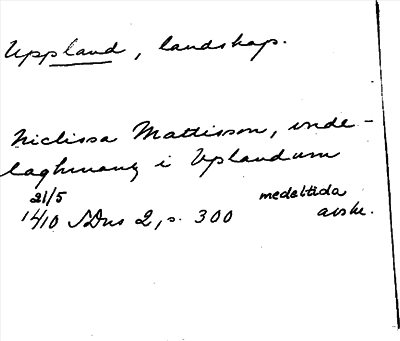 Uppland, landskap.
Niclissa Mattisson, vnde-
laghmanz i Vplandum
21/5 medeltida
1410 SDns 2, s. 300 avskr.